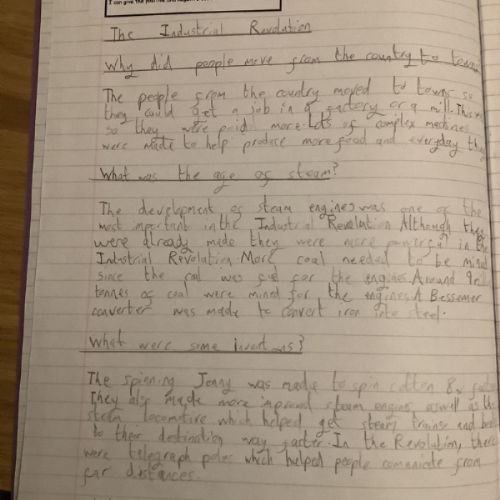 I can give the positive and negative
The Industrial Revolution
Why did people move from the country to towns
The people from the country moved to towns so
they could get a job in a factory or a mill. This
so they were paid more. Lots of complex machines
were made to help produce more food and everyday
What was the age of steam?
The development of steam engines was one of the
most important in the Industrial Revolution. Although they
were already made they were more powerful in the
Industrial Revolution. More coal needed to be mined
since the coal was fuel for the engines. Around
tonnes of coal were mind for the engines. A Bessemer
converter was made to convert iron into steel.
What were some
The Spinning Jenny was made to spin cotton
They also made more improved steam engines aswell as the
steam locomotive which helped get steam trains and
to their destination way faster. In the Revolution, there
were telegraph poles which helped people comunicate from
far distances.